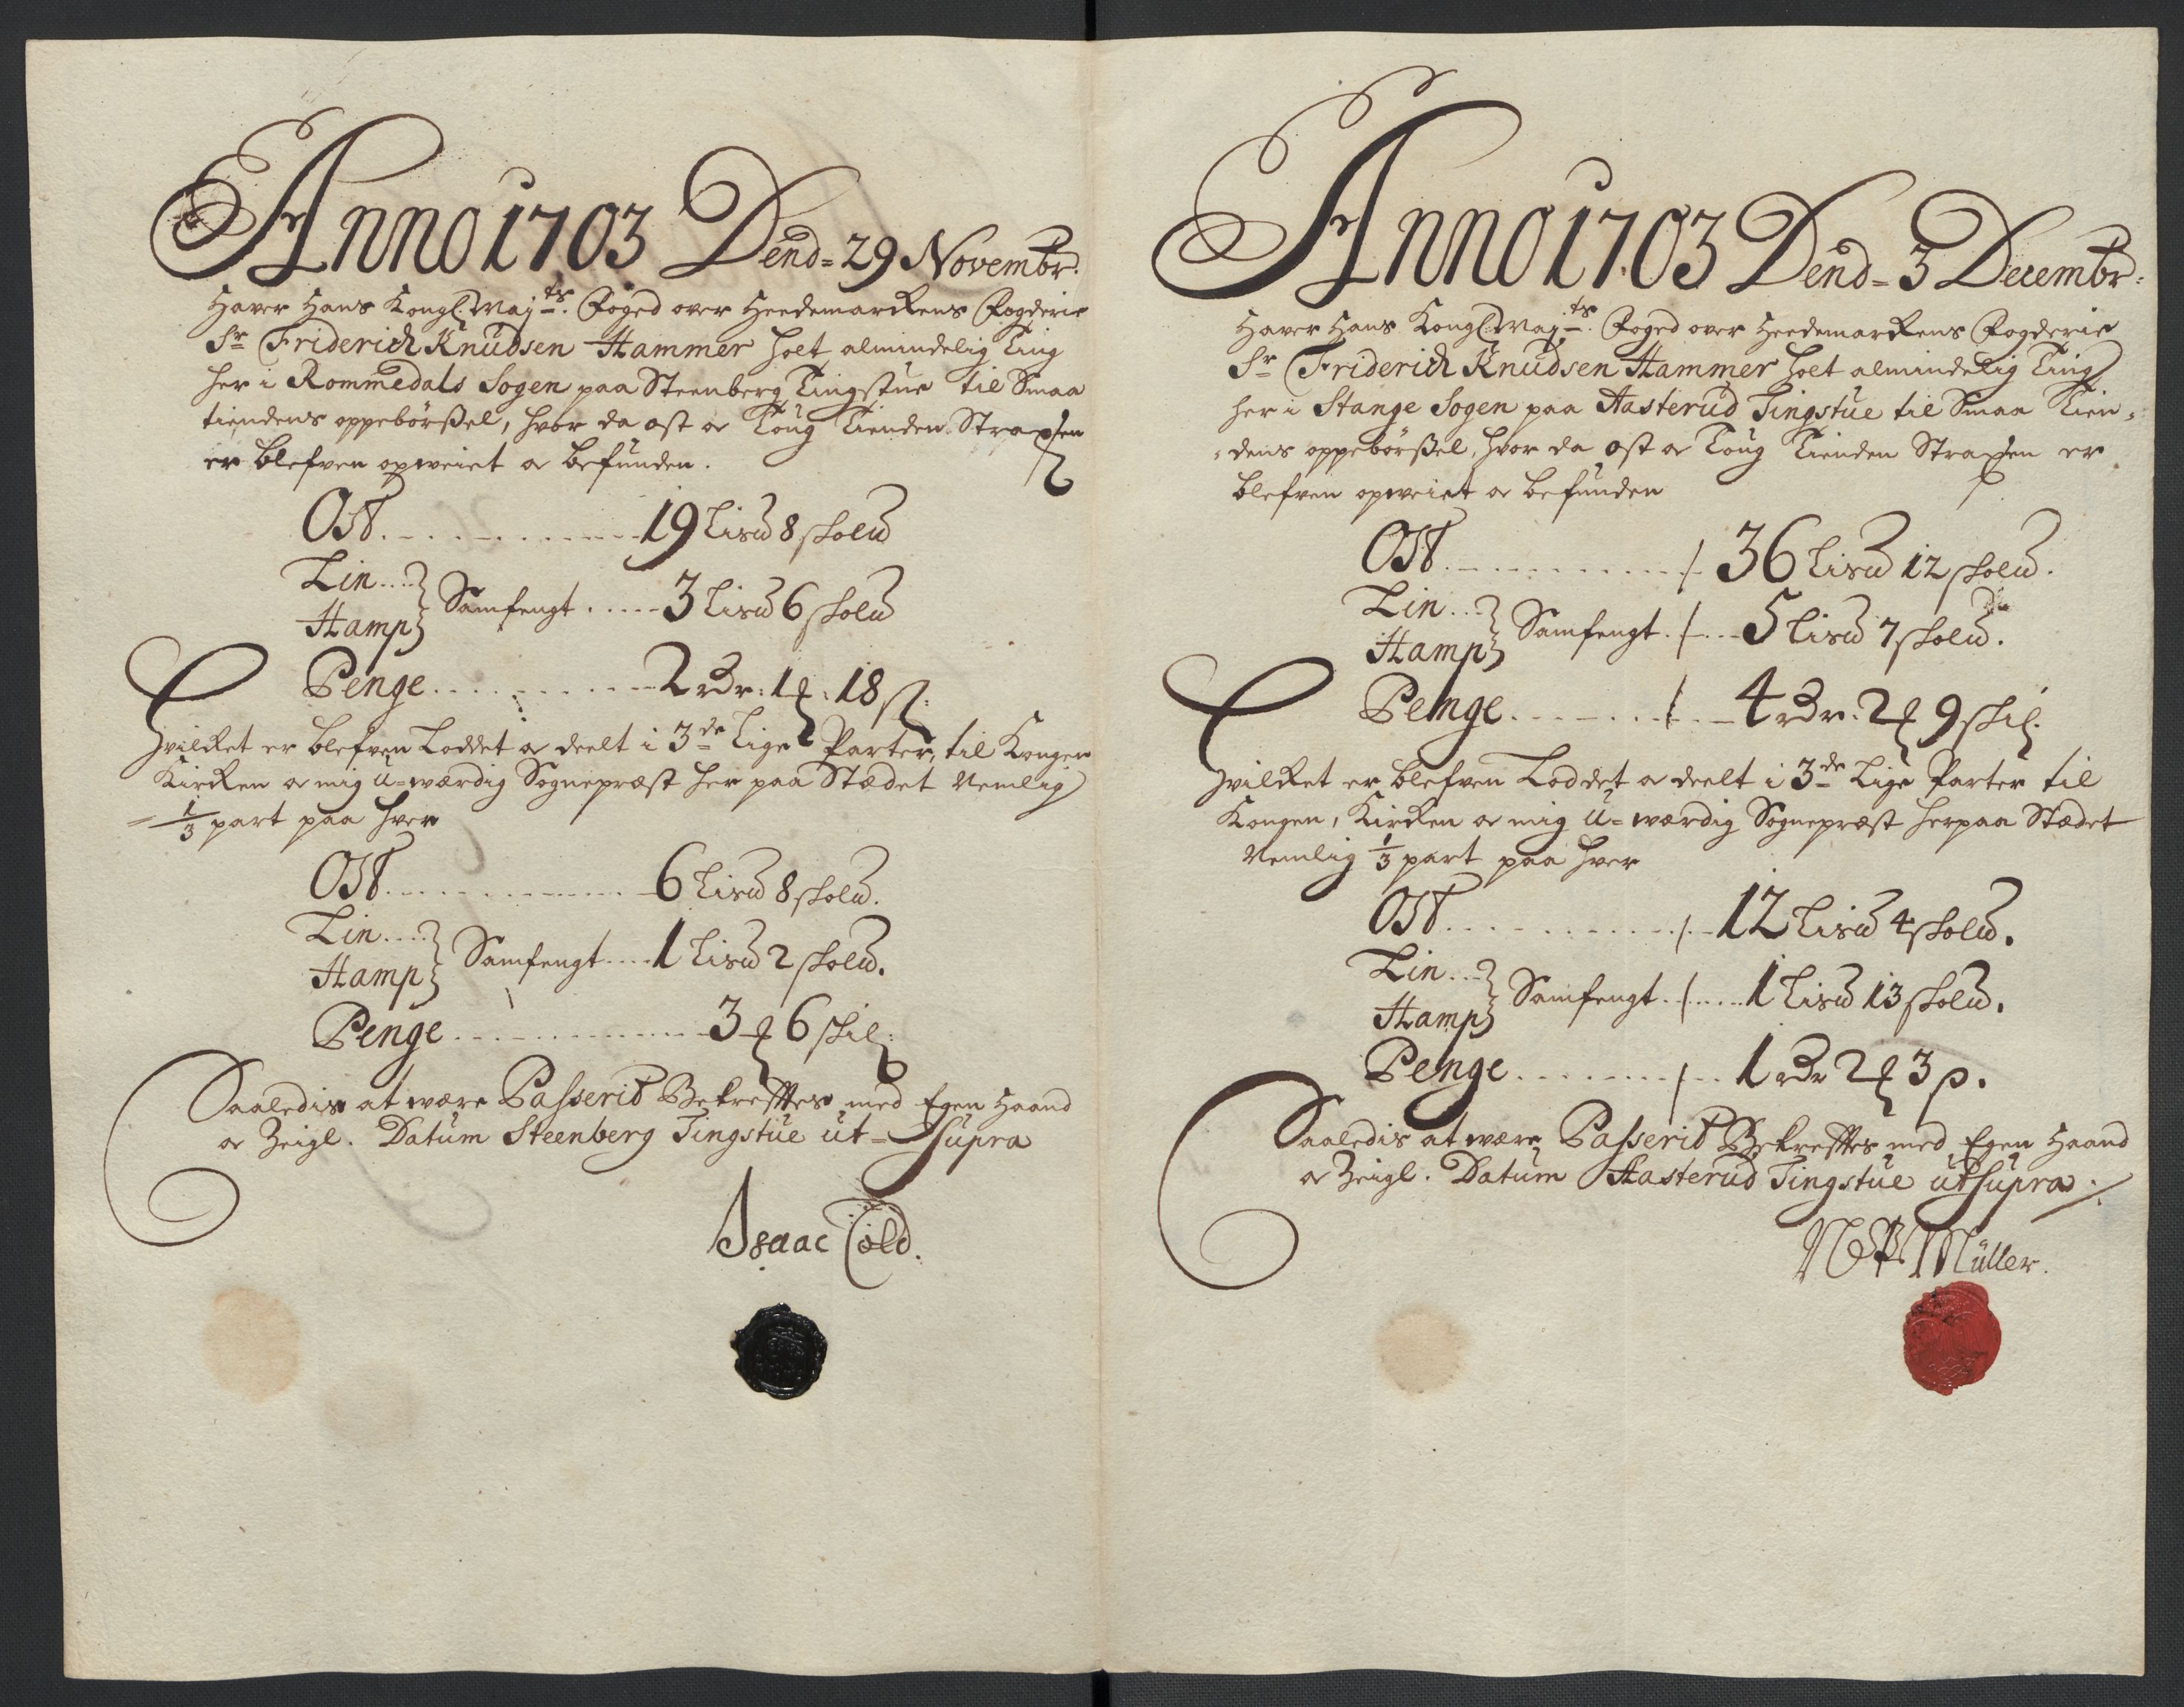 Anno 1703 Dend= 29 Novembr.
Haver Hans Kongl: May:ts Foged over Heedemarkens Fogderie
Sr Friderich Knudsen Hammer holt almindelig Ting
her i Rommedals Sogen paa Steenberg Tingstue til Smaa
tiendens oppebörßel, hvor da ost oc Toug Tienden Straxsen
er blefven opveiet oc befunden.
Ost ............ 19 Lis℔ 8 skol℔
Lin ....
Hamp } Samfengt ..... 3 Lis℔ 6 skol℔
Penge ............ 2 rdr: 1 ꝑ: 18 ß:
Hvilket er blefven Loddet oc deelt i 3de Lige Parter, til Kongen
Kirken oc mig U=værdig Sognepræst her paa Stædet Nemlig
1/3 part paa hver
Ost ............ 6 Lis℔ 8 skol℔.
Lin ....
Hamp } Samfengt .... 1 Lis℔ 2 skol℔.
Penge ............ 3 ꝑ 6 skil:
Saaledis at være Passerit Bekreffter med Egen Haand
oc Zeigl. Datum Steenberg Tingstue ut=Supra
Isaac Cold.
Anno 1703 Dend= 3 Decembr:
Haver Hans Kongl: May:ts Foged over Heedemarkens Fogderie
Sr Friderich Knudsen Hammer holt almindelig Ting
her i Stange Sogen paa Aasterud Tingstue til Smaa Tien=
=dens oppebörßel, hvor da ost oc Toug Tienden Straxsen er
blefven opveiet oc befunden
Ost ............ 36 Lis℔ 12 skol℔.
Lin ...
Hamp } Samfengt .... 5 Lis℔ 7 skol℔.
Penge ............ 4 rdr. 2 ꝑ 9 skil.
Hvilket er blefven Loddet oc deelt i 3de Lige Parter til
Kongen, Kirken oc mig U=værdig Sognepræst herpaa Stædet
Nemlig 1/3 part paa hver
Ost ............ 12 Lis℔ 4 skol℔.
Lin ...
Hamp } Samfengt ..... 1 Lis℔ 13 skol℔.
Penge ............ 1 rdr 2 ꝑ 3 ß.
Saaledis at være Passerit Bekreffter med Egen Haand
oc Zeigl. Datum Aasterud Tingstue ut Supra.
Müller.